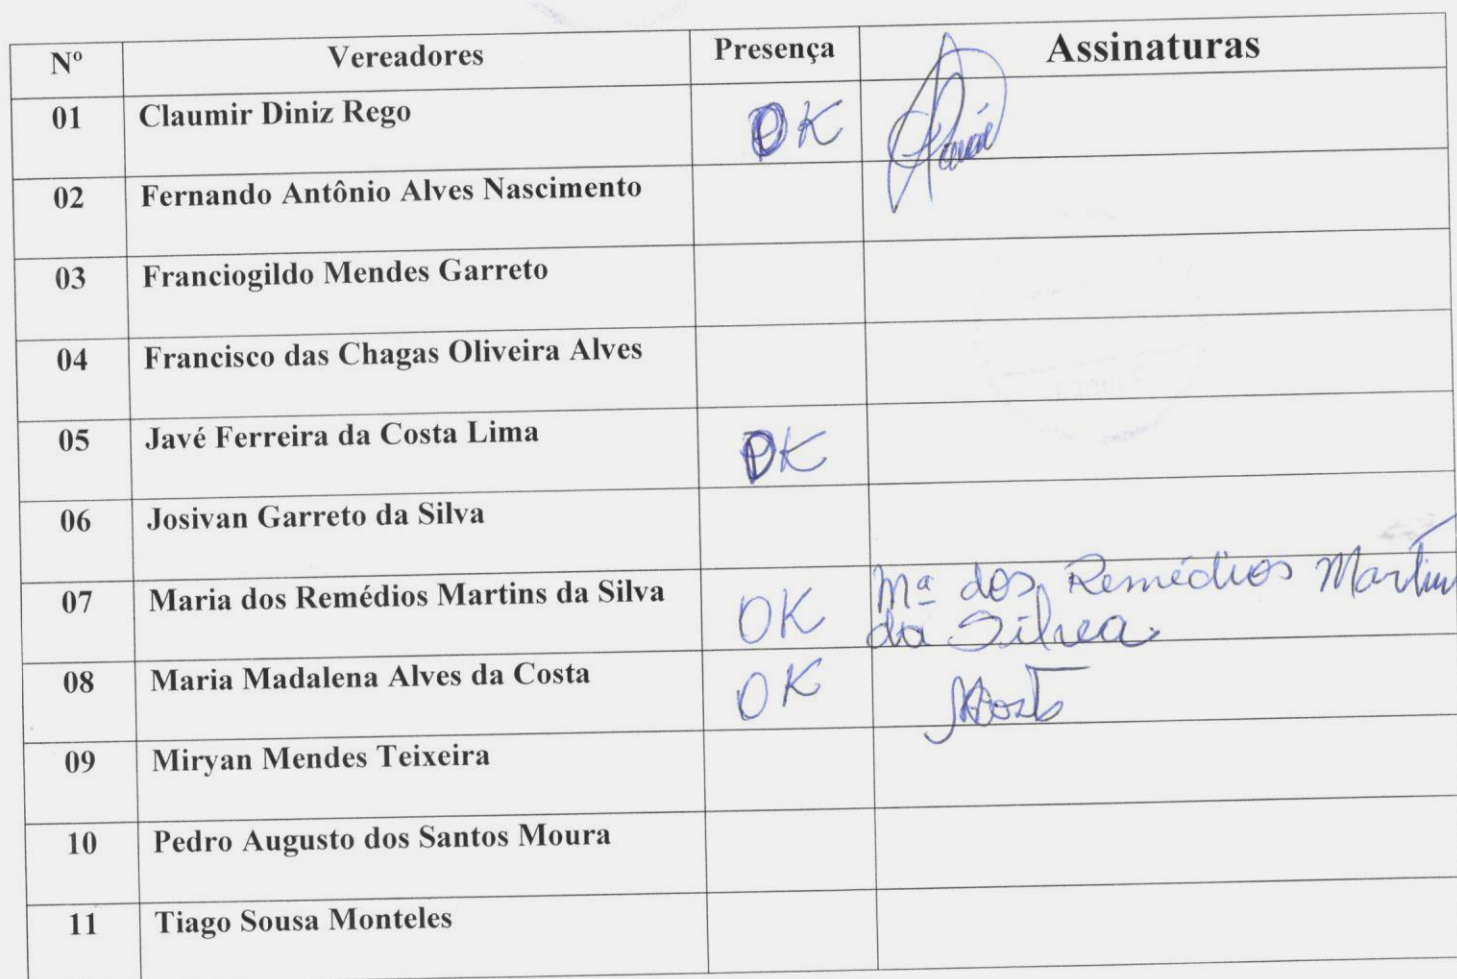 Nº Vereadores Presença Assinaturas
01 Claumir Diniz Rego OK
02 Fernando Antônio Alves Nascimento
03 Franciogildo Mendes Garreto
04 Francisco das Chagas Oliveira Alves
05 Javé Ferreira da Costa Lima OK
06 Josivan Garreto da Silva
07 Maria dos Remédios Martins da Silva OK Mª dos Remédios Martins
da Silva
08 Maria Madalena Alves da Costa OK
09 Miryan Mendes Teixeira
10 Pedro Augusto dos Santos Moura
11 Tiago Sousa Monteles